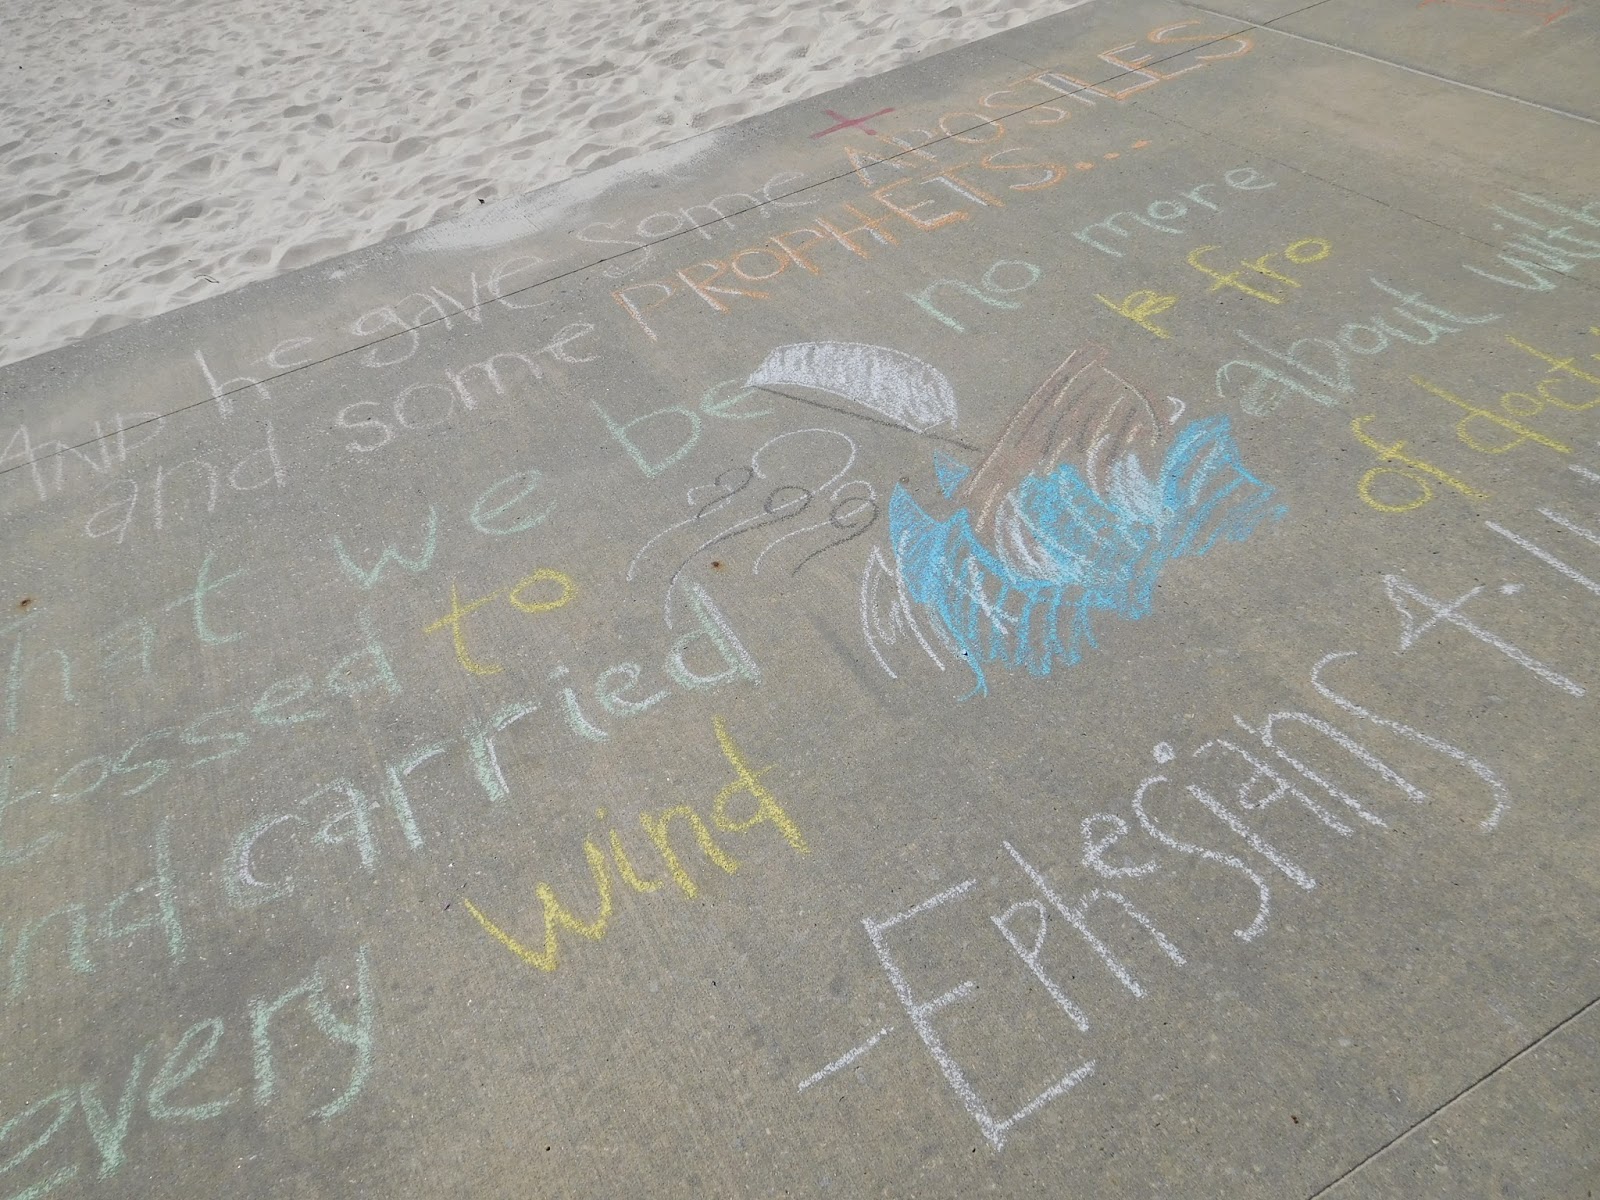 AND he gave some APOSTLES
and some PROPHETS...
That we be no more
tossed to & fro
and carried about with
every wind of doct
-Ephesians 4:11